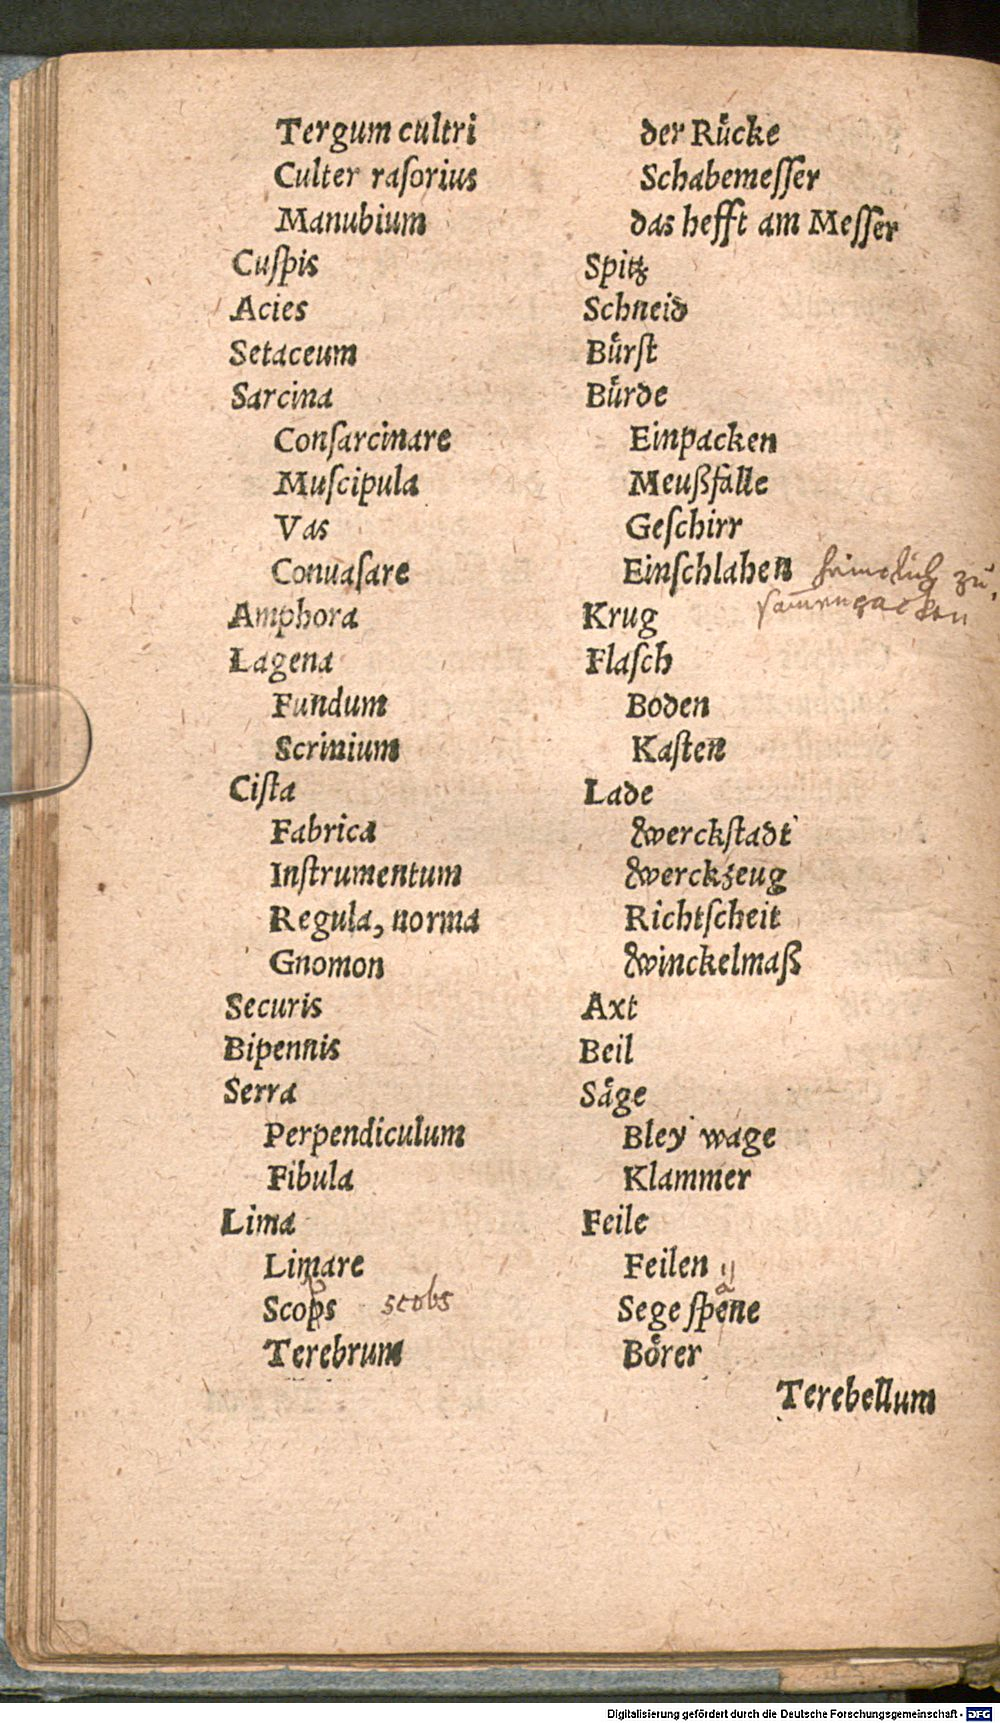 Tergum cultri der Ruͤcke
Culter raſorius Schabemeſſer
Manubium das hefft am Meſſer
Cuſpis Spitz
Acies Schneid
Setaceum Buͤrſt
Sarcina Buͤrde
Conſarcinare Einpacken
Muſcipula Meußfalle
Vas Geſchirr
Conuaſare Einſchlahen heimelich zu
Amphora Krug
Lagena Flaſch
Fundum Boden
Scrinium Kaſten
Ciſta Lade
Fabrica Werckſtadt
Inſtrumentum Werckzeug
Regula, norma Richtſcheit
Gnomon Winckelmaß
Securis Axt
Bipennis Beil
Serra Saͤge
Perpendiculum Bley wage
Fibula Klammer
Lima Feile
Limare Feilen
b
a
Scops scobs Sege ſpene
Terebrum Boͤrer
Terebellum
Digitalisierung gefördert durch die Deutsche Forschungsgemeinschaft - DFG